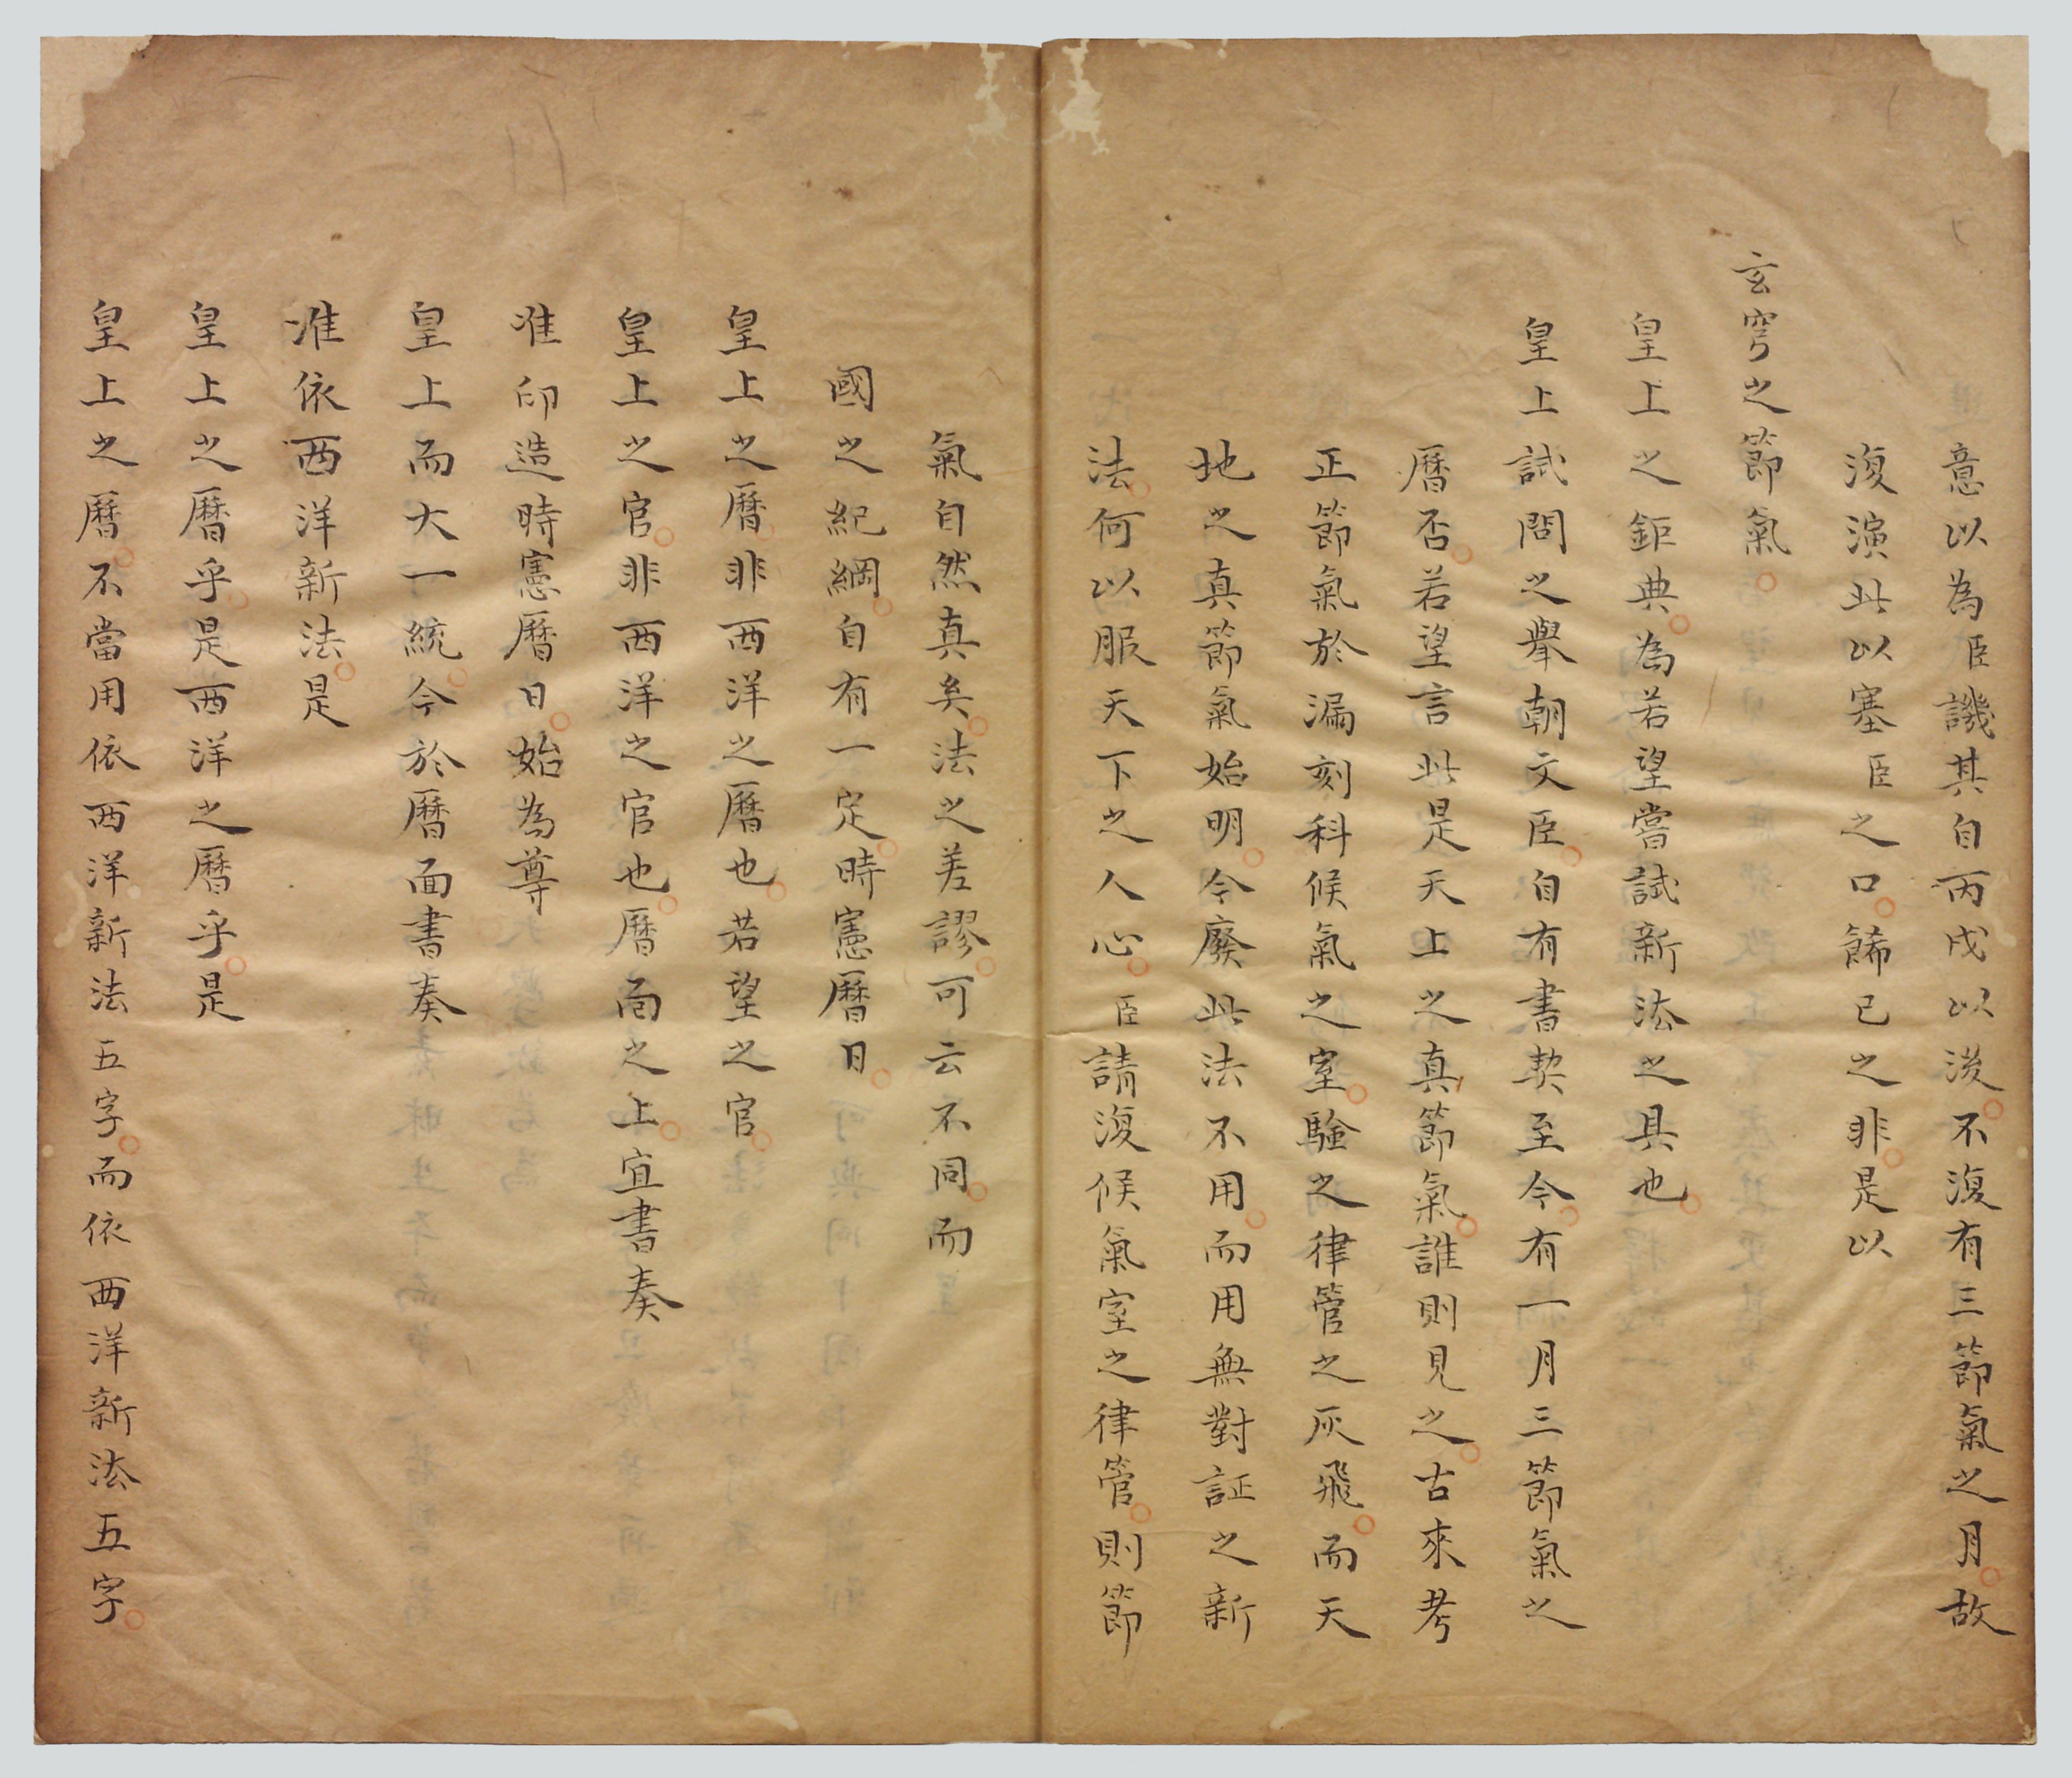 意以為臣譏其自丙戌以後不復有三節氣之月故
復演此以塞臣之口餙已之非是以
玄穹之節氣
皇上之鉅典為若望嘗試新法之具也
皇上試問之舉朝文臣自有書契至今有一月三節氣之
曆否若望言此是天上之真節氣誰則見之古來考
正節氣於漏刻科候氣之室驗之律管之灰飛而天
地之真節氣始明今廢此法不用而用無對証之新
法何以服天下之人心臣請復候氣室之律管則節
氣自然真矣法之差謬可云不同而
國之紀綱自有一定時憲曆日
皇上之曆非西洋之曆也若望之官
皇上之官非西洋之官也曆面之上宜書奏
准印造時憲曆日始為尊
皇上而大一統今於曆面書奏
准依西洋新法是
皇上之曆乎是西洋之曆乎是
皇上之曆不當用依西洋新法五字而依西洋新法五字